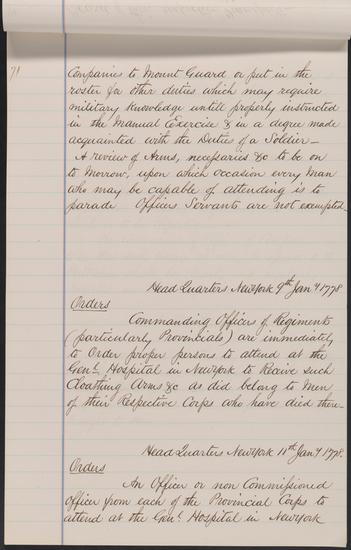 71
Companies to Mount Guard or put in the
roster for other duties which may require
military knowledge untill properly instructed
in the Manual Exercise & in a degree made
acquainted with the Duties of a Soldier—
A review of Arms, necessaries &c to be on
to Morrow, upon which occasion every Man
who may be capable of attending is to
parade Officers Servants are not exempted—
Head Quarters NewYork 9th Jany 1778
Orders
Commanding Officers of Regiments
(particularly Provincials) are immediately
to Order proper persons to attend at the
Genl. Hospital in NewYork to Recive such
Cloathing Arms &c as did belong to Men
of their Respective Corps who have died there—
Head Quarters NewYork 11th Jany 1778.
Orders
An Officer or non Commissioned
officer from each of the Provincial Corps to
attend at the Genl. Hospital in NewYork